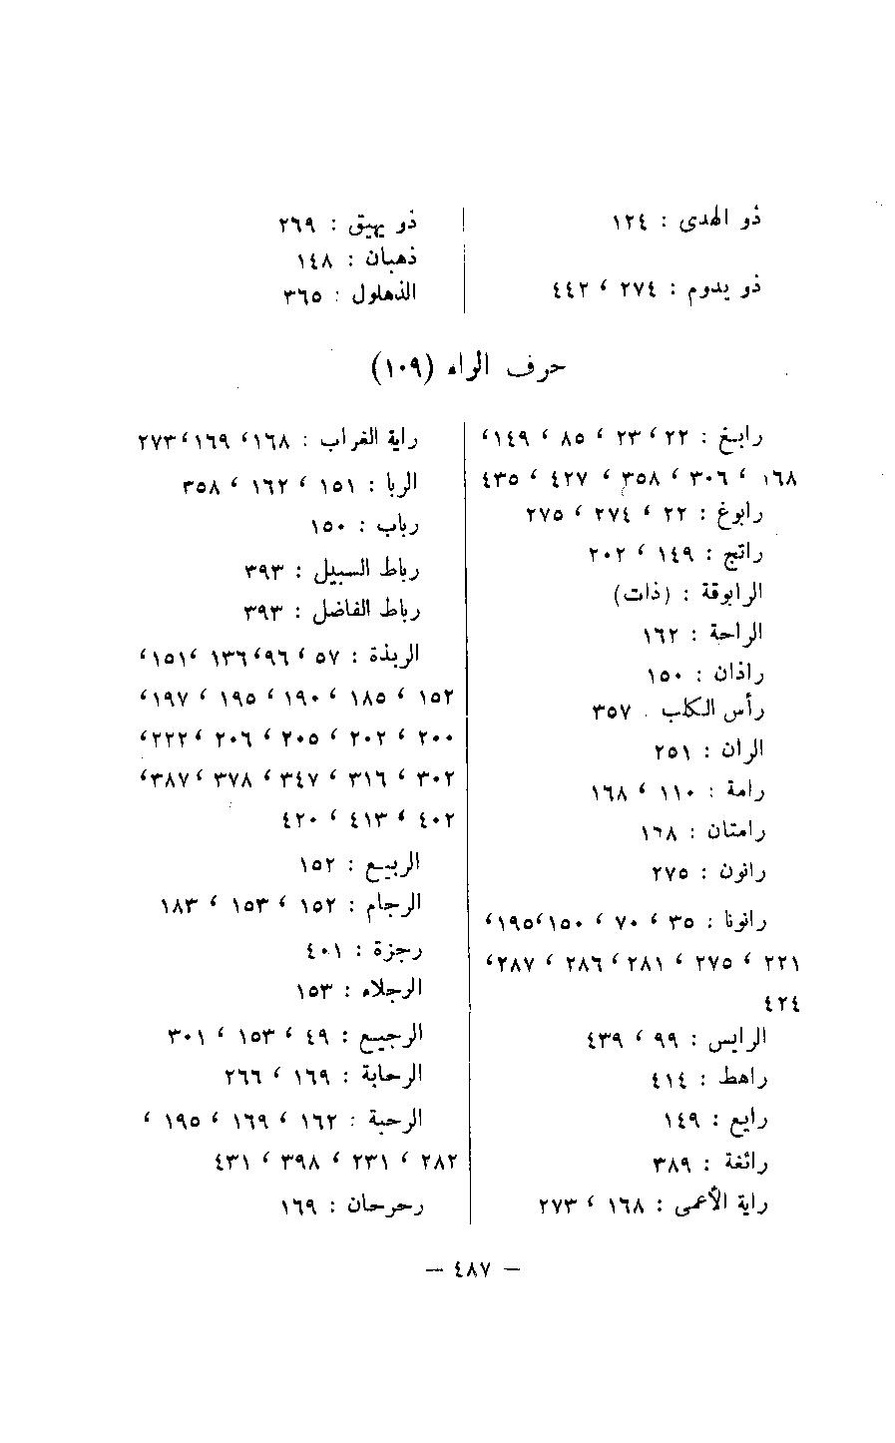 ذو الهدى : ١٢٤
ذو يدوم : ٢٧٤ ، ٤٤٢
ذو يهيق : ٢٦٩
ذهبان : ١٤٨
الذهلول : ٣٦٥
حرف الراء (١٠٩)
رابغ : ٢٢ ، ٢٣ ، ٨٥ ، ١٤٩،
١٦٨ ، ٣٠٦ ، ٣٥٨ ، ٤٢٧ ، ٤٣٥
رابوغ : ٢٢ ، ٢٧٤ ، ٢٧٥
راتج : ١٤٩ ، ٢٠٢
الرابوقة : (ذات)
الراحة : ١٦٢
راذان : ١٥٠
رأس الكلب . ٣٥٧
الران : ٢٥١
رامة : ١١٠ ، ١٦٨
رامتان : ١٦٨
رانون : ٢٧٥
رانونا : ٣٥ ، ٧٠ ، ١٥٠،١٩٥،
٢٢١ ، ٢٧٥ ، ٢٨١ ، ٢٨٦ ، ٢٨٧،
٤٢٤
الرايس : ٩٩ ، ٤٣٩
راهط : ٤١٤
رايع : ١٤٩
رائغة : ٣٨٩
راية الأعمى : ١٦٨ ، ٢٧٣
راية الغراب : ١٦٨، ١٦٩،٢٧٣
الربا : ١٥١ ، ١٦٢ ، ٣٥٨
رباب : ١٥٠
رباط السبيل : ٣٩٣
رباط الفاضل : ٣٩٣
الربذة : ٥٧ ، ٩٦،١٣٦ ،١٥١،
١٥٢ ، ١٨٥ ، ١٩٠ ، ١٩٥ ، ١٩٧،
٢٠٠ ، ٢٠٢ ، ٢٠٥ ، ٢٠٦ ،٢٢٢،
٣٠٢ ، ٣١٦ ، ٣٤٧ ، ٣٧٨ ،٣٨٧،
٤٠٢ ، ٤١٣ ، ٤٢٠
الربيع : ١٥٢
الرجام : ١٥٢ ، ١٥٣ ، ١٨٣
رجزة : ٤٠١
الرجلاء : ١٥٣
الرجيع : ٤٩ ، ١٥٣ ، ٣٠١
الرحابة : ١٦٩ ، ٢٦٦
الرحبة : ١٦٢ ، ١٦٩ ، ١٩٥ ،
٢٨٢ ، ٢٣١ ، ٣٩٨ ، ٤٣١
رحرحان : ١٦٩
— ٤٨٧ —